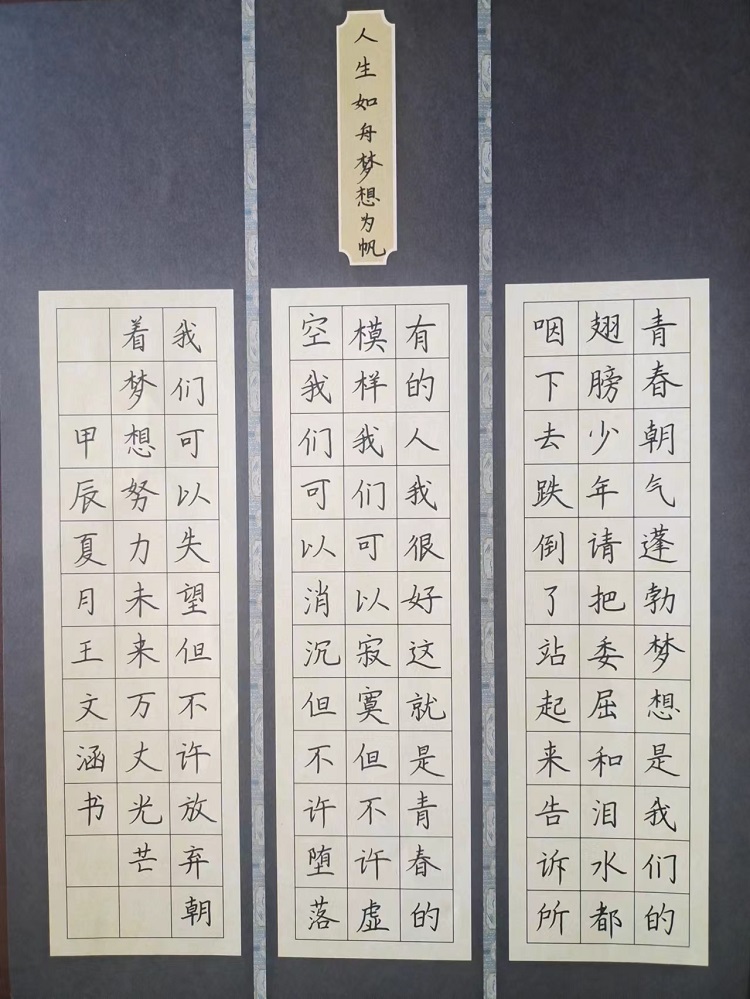 人生如舟梦想为帆
青春朝气蓬勃梦想是我们的
翅膀少年请把委屈和泪水都
咽下去跌倒了站起来告诉所
有的人我很好这就是青春的
模样我们可以寂寞但不许虚
空我们可以消沉但不许堕落
我们可以失望但不许放弃朝
着梦想努力未来万丈光芒
甲辰夏月王文涵书